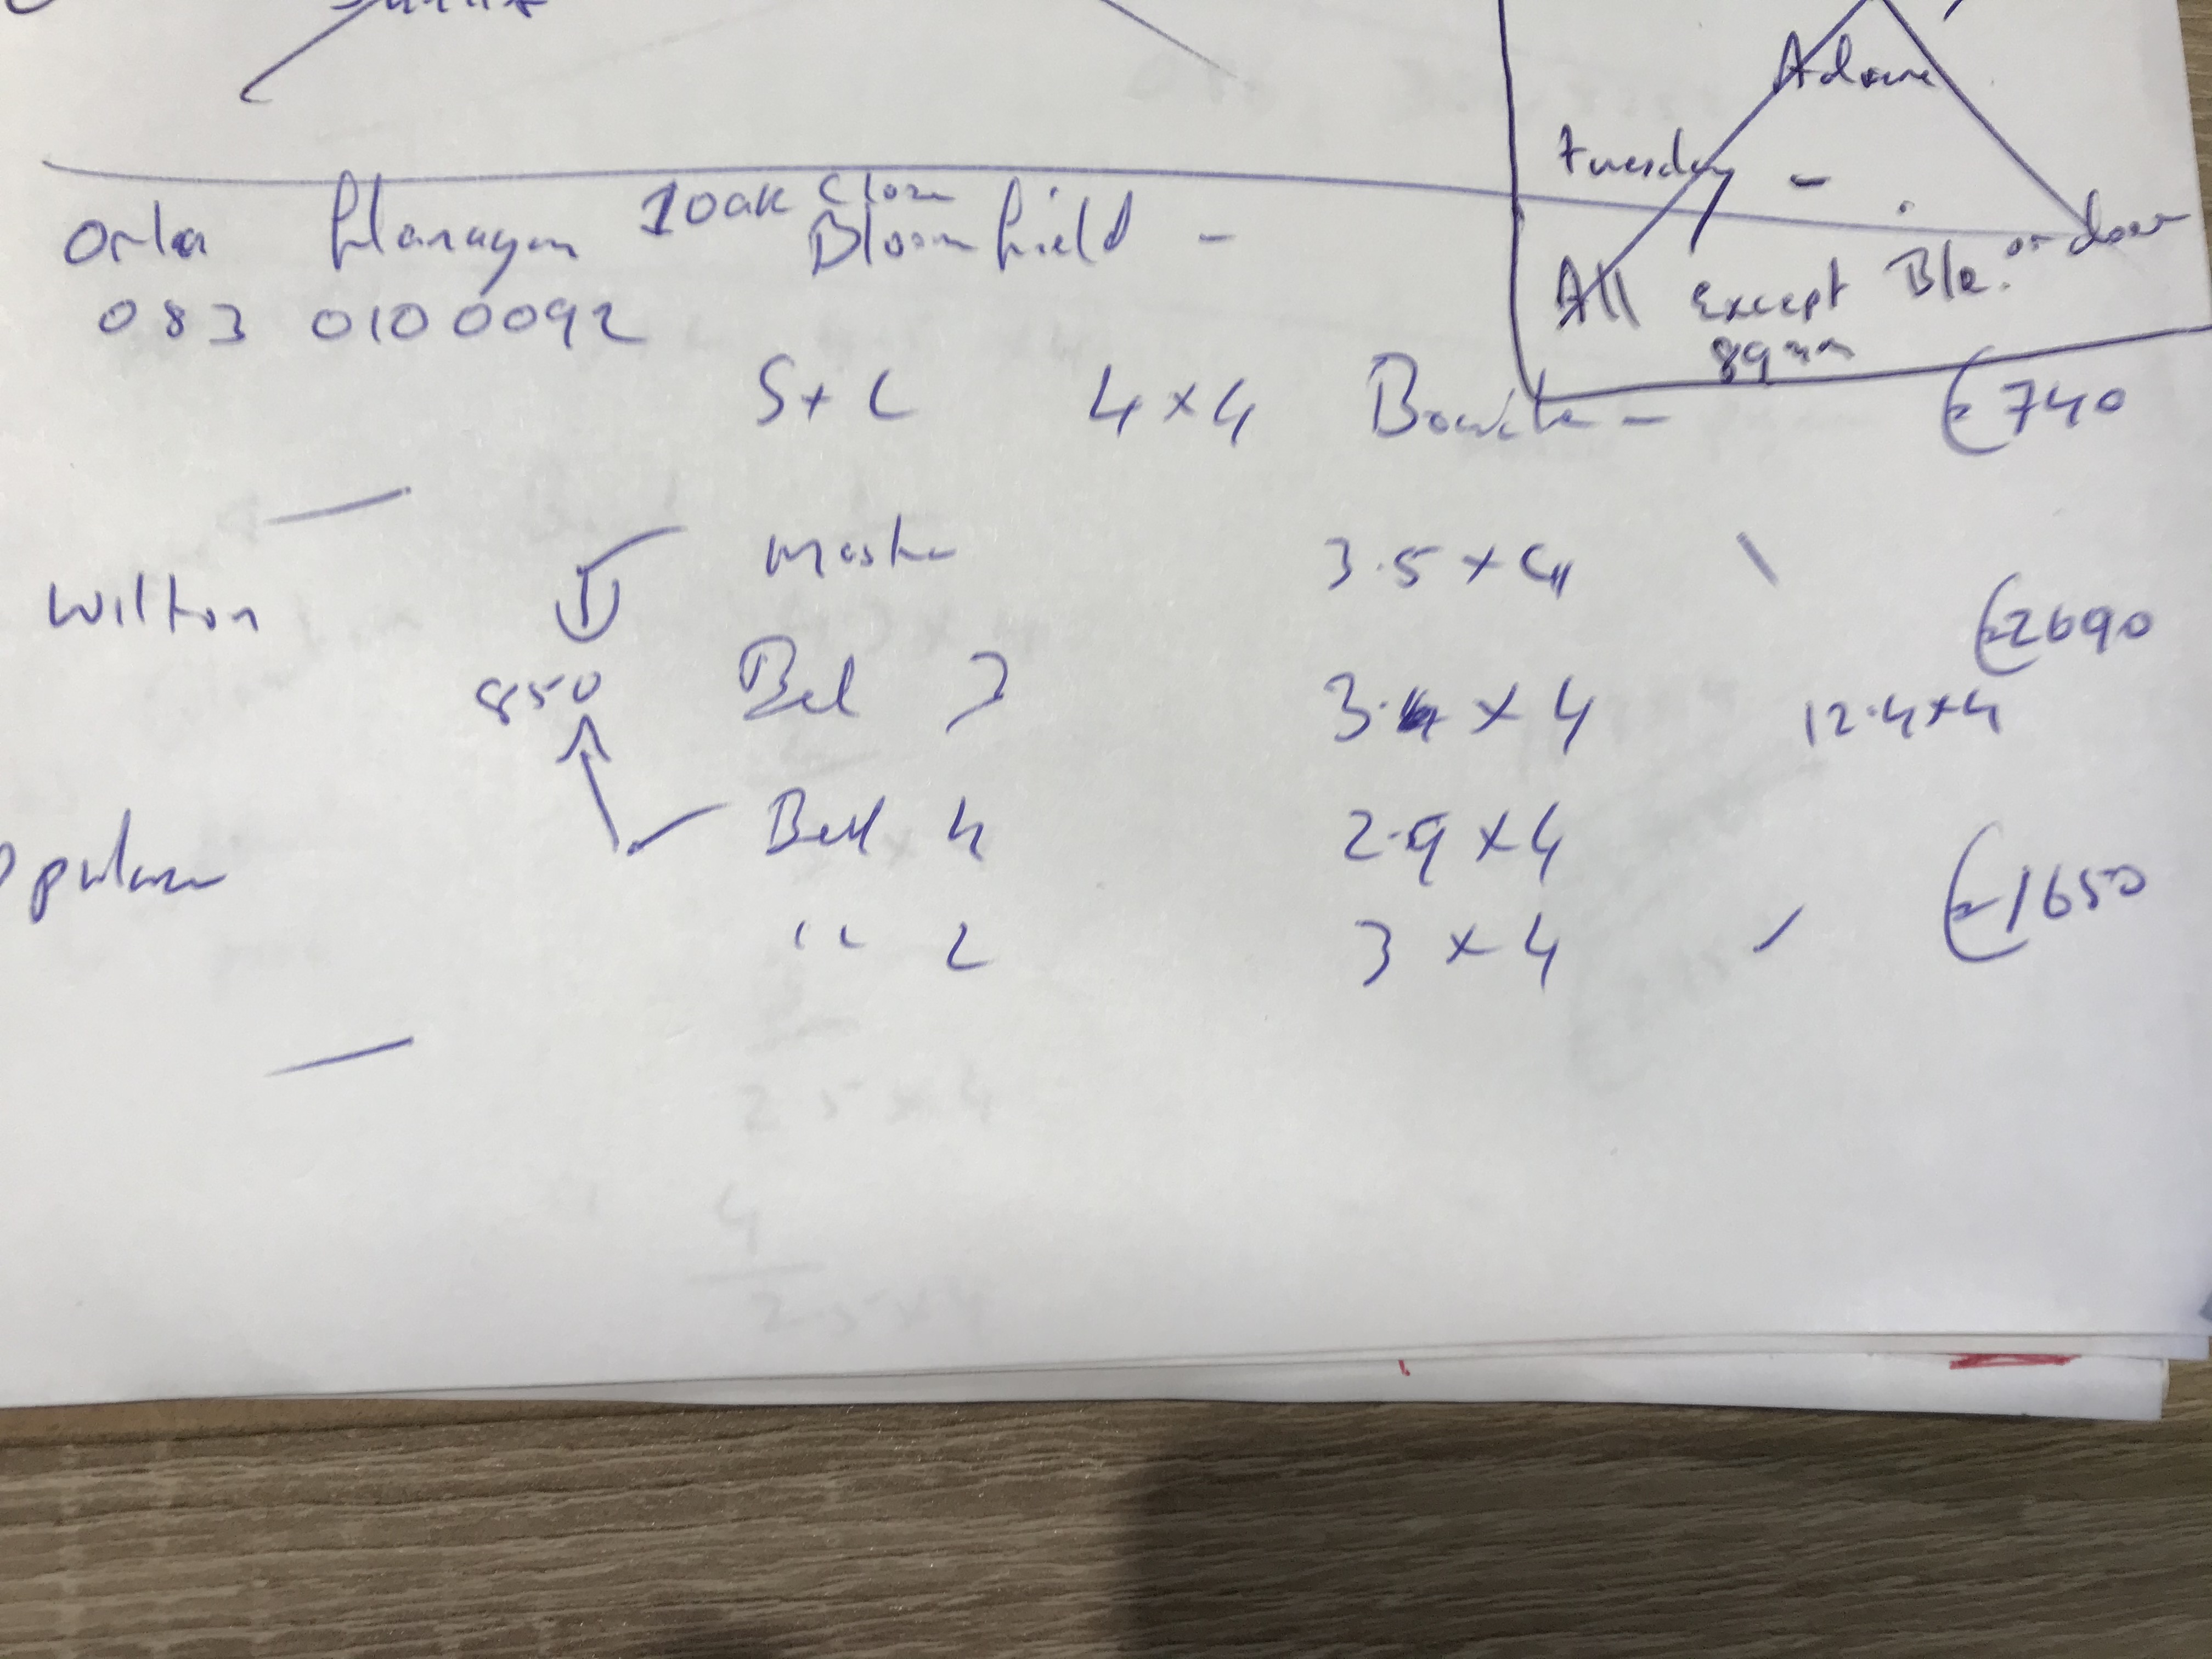 Adare
Tuesday -
All Except Ble. or door
89mm
Orla Flanagan 1 Oak Close
Bloomfield -
083 0100092
S+L 4x4 - €740
Master 3.5 x 4
Wilton
€2690
850 Bed 3 3.4 x 4 12.4x4
Bed 4 2.9 x 4
€1650
" 2 3 x 4